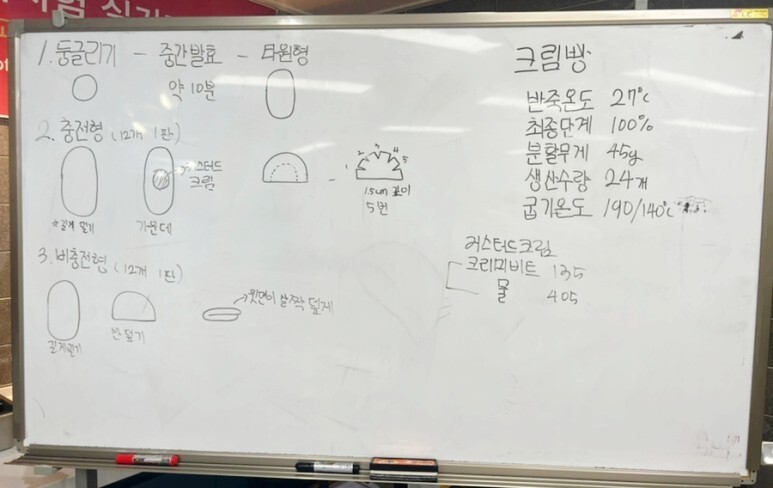 1. 둥글리기 - 중간발효 - 타원형
약 10분
2. 충전형 (12개 1판)
커스터드
크림
*길게 밀기
가운데
1 2 3 4 5
1.5cm 깊이
5번
3. 비충전형 (12개 1판)
길게밀기
반 덮기
윗면이 살짝 덮게
크림빵
반죽온도 27℃
최종단계 100%
분할무게 45g
생산수량 24개
굽기온도 190/140℃
커스터드크림
크리미비트 135
물 405